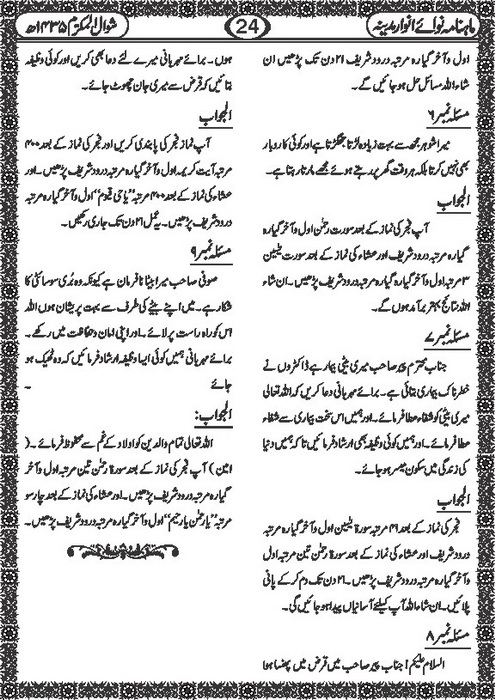 ماہنامہ نوائے انوار مدینہ
24
شوال المکرم ۱۴۳۵ھ
اول و آخر گیارہ مرتبہ درود شریف ۲۱ دن تک پڑھیں ان
شاء اللہ مسائل حل ہو جائیں گے۔
مسئلہ نمبر ۶
میرا شوہر مجھ سے بہت زیادہ لڑتا جھگڑتا ہے اور کوئی کاروبار
بھی نہیں کرتا بلکہ ہر وقت گھر پر رہتے ہوئے مجھے مارتا رہتا ہے۔
الجواب
آپ فجر کی نماز کے بعد سورت رحمٰن اول و آخر گیارہ
گیارہ مرتبہ درود شریف اور عشاء کی نماز کے بعد سورت یٰسین
۳ مرتبہ اول و آخر گیارہ گیارہ مرتبہ درود شریف پڑھیں۔ ان شاء
اللہ نتائج بہتر برآمد ہوں گے۔
مسئلہ نمبر ۷
جناب محترم پیر صاحب میری بیٹی بیمار ہے ڈاکٹروں نے
خطرناک بیماری بتائی ہے۔ برائے مہربانی دعا کریں کہ اللہ تعالیٰ
میری بیٹی کو شفاء عطا فرمائے۔ اور ہمیں اس سخت بیماری سے شفاء
عطا فرمائے۔ اور ہمیں کوئی وظیفہ بھی ارشاد فرمائیں تاکہ ہمیں دنیا
کی زندگی میں سکون میسر ہو جائے۔
الجواب
فجر کی نماز کے بعد ۴۱ مرتبہ سورۃ یٰسین اول و آخر گیارہ مرتبہ
درود شریف اور عشاء کی نماز کے بعد سورۃ رحمٰن تین مرتبہ اول
و آخر گیارہ مرتبہ درود شریف پڑھیں۔ ۲۱ دن تک دم کر کے پانی
پلائیں۔ ان شاء اللہ آپ کیلئے آسانیاں پیدا ہو جائیں گی۔
مسئلہ نمبر ۸
السلام علیکم! جناب پیر صاحب میں قرض میں پھنسا ہوا
ہوں۔ برائے مہربانی میرے لئے دعا بھی کریں اور کوئی وظیفہ
بتائیں کہ قرض سے میری جان چھوٹ جائے۔
الجواب
آپ نماز فجر کی پابندی کریں اور فجر کی نماز کے بعد ۳۰۰
مرتبہ آیت کریمہ اول و آخر گیارہ مرتبہ درود شریف پڑھیں۔ اور
عشاء کی نماز کے بعد ۳۰۰ مرتبہ ”یا حی قیوم“ اول و آخر گیارہ مرتبہ
درود شریف پڑھیں۔ یہ عمل ۲۱ دن تک جاری رکھیں۔
مسئلہ نمبر ۹
صوفی صاحب میرا بیٹا نافرمان ہے کیونکہ وہ بُری سوسائٹی کا
شکار ہے۔ میں اپنے بیٹے کی طرف سے بہت پریشان ہوں اللہ
اس کو راہ راست پر لائے۔ اور اپنی امان و حفاظت میں رکھے۔
برائے مہربانی ہمیں کوئی ایسا وظیفہ ارشاد فرمائیں کہ وہ ٹھیک ہو
جائے۔
الجواب:
اللہ تعالیٰ تمام والدین کو اولاد کے غم سے محفوظ فرمائے۔ (
امین) آپ فجر کی نماز کے بعد سورۃ رحمٰن تین مرتبہ اول و آخر
گیارہ مرتبہ درود شریف پڑھیں۔ اور عشاء کی نماز کے بعد چار سو
مرتبہ ”یا رحمٰن یا رحیم“ اول و آخر گیارہ مرتبہ درود شریف پڑھیں۔